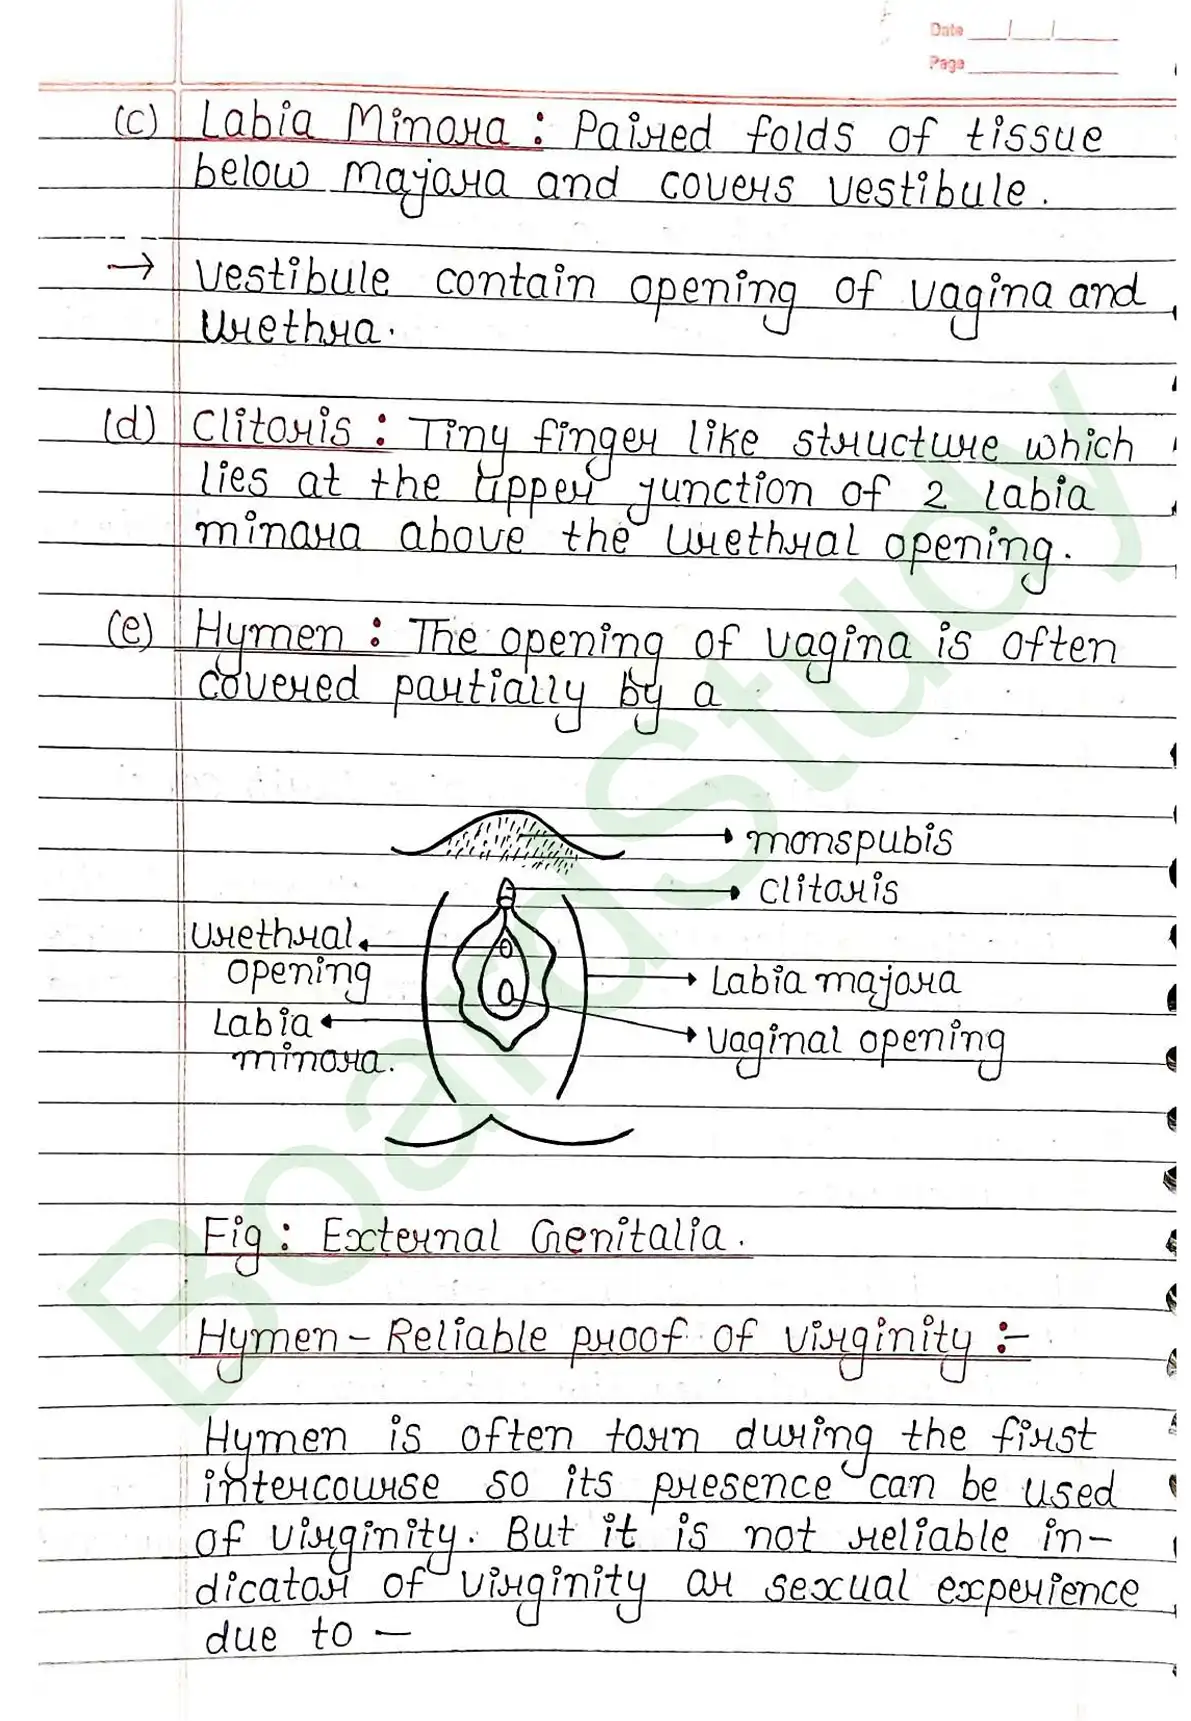 Date
Page
(c) Labia Minora : Paired folds of tissue
below majora and covers vestibule.
→ Vestibule contain opening of vagina and
urethra.
(d) Clitoris : Tiny finger like structure which
lies at the upper junction of 2 labia
minara above the urethral opening.
(e) Hymen : The opening of vagina is often
covered partially by a
monspubis
Clitoris
Urethral
opening
Labia majora
Labia
minora.
Vaginal opening
Fig : External Genitalia.
Hymen – Reliable proof of virginity :–
Hymen is often torn during the first
intercourse so its presence can be used
of virginity. But it is not reliable in-
dicator of virginity or sexual experience
due to –
BoardStudy